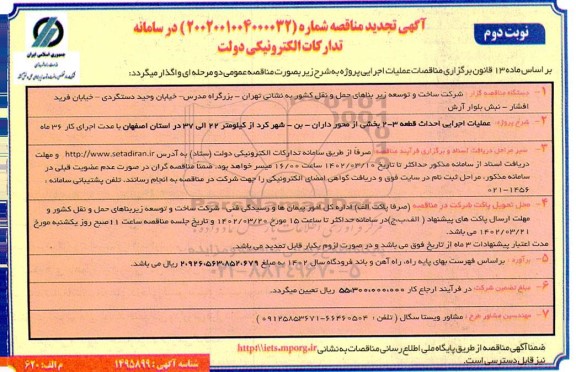 نوبت دوم
آگهی تجدید مناقصه شماره (۲۰۰۲۰۰۱۰۰۴۰۰۰۰۳۲) در سامانه
تدارکات الکترونیکی دولت
جمهوری اسلامی ایران
بر اساس ماده ۱۳ قانون برگزاری مناقصات عملیات اجرایی پروژه به شرح زیر بصورت مناقصه عمومی دو مرحله ای واگذار میگردد:
۱- دستگاه مناقصه گزار: شرکت ساخت و توسعه زیر بناهای حمل و نقل کشور به نشانی تهران - بزرگراه مدرس- خیابان وحید دستگردی - خیابان فرید
افشار - نبش بلوار آرش
۲- شرح پروژه: عملیات اجرایی احداث قطعه ۳-۲ بخشی از محور داران - بن - شهر کرد از کیلومتر ۲۲ الی ۳۷ در استان اصفهان با مدت اجرای کار ۳۶ ماه
۳- سیر مراحل دریافت اسناد و برگزاری فرآیند مناقصه: صرفا از طریق سامانه تدارکات الکترونیکی دولت (ستاد) به آدرس http://www.setadiran.ir و مهلت
دریافت اسناد از سامانه مذکور حداکثر تا تاریخ ۱۴۰۲/۰۳/۱۰ ساعت ۱۶/۰۰ میسر خواهد بود. ضمنا مناقصه گران در صورت عدم عضویت قبلی در
سامانه مذکور، مراحل ثبت نام در سایت فوق و دریافت گواهی امضای الکترونیکی را جهت شرکت در مناقصه به انجام رسانند. تلفن پشتیبانی سامانه :
۰۲۱-۱۴۵۶
۴- محل تحویل پاکت شرکت در مناقصه (صرفا پاکت الف) اداره کل امور پیمان ها و رسیدگی فنی شرکت ساخت و توسعه زیربناهای حمل و نقل کشور و
مهلت ارسال پاکت های پیشنهاد (الف-ب-ج) در سامانه حداکثر تا ساعت ۱۵ مورخ ۱۴۰۲/۰۳/۲۰ و تاریخ جلسه مناقصه ساعت ۱۱ صبح روز یکشنبه مورخ
۱۴۰۲/۰۳/۲۱ می باشد.
مدت اعتبار پیشنهادات ۳ ماه از تاریخ فوق می باشد و در صورت لزوم یکبار قابل تمدید می باشد.
۵- برآورد : براساس فهرست بهای پایه راه، راه آهن و باند فرودگاه سال ۱۴۰۲ به مبلغ ۲.۰۹۲۶.۰۵۶۳.۰۸۵۲.۰۶۷۹ ریال می باشد.
۰۲۱-۸۸۳۴۹۶۷۰-۵
۶- مبلغ تضمین شرکت: در فرآیند ارجاع کار ۵۵.۳۰۰.۰۰۰.۰۰۰ ریال تعیین میگردد.
۷- مهندسین مشاور طرح : مشاور ویستا سگال ( تلفن : ۶۶۴۶۰۵۰۴-۰۹۱۲۵۸۵۳۶۷۱)
ضمنا آگهی مناقصه از طریق پایگاه ملی اطلاع رسانی مناقصات به نشانی http\\iets.mporg.ir
نیز قابل دسترسی است.
شناسه آگهی : ۱۴۹۵۸۹۹
م الف: ۶۲۰